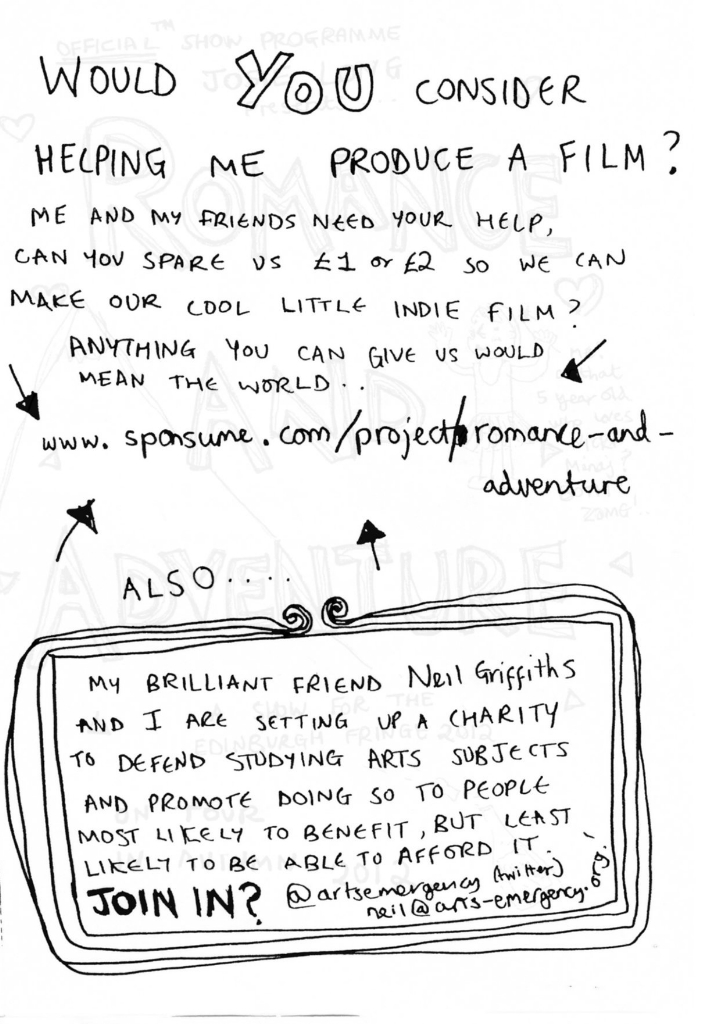 WOULD YOU CONSIDER
HELPING ME PRODUCE A FILM?
ME AND MY FRIENDS NEED YOUR HELP,
CAN YOU SPARE US £1 or £2 SO WE CAN
MAKE OUR COOL LITTLE INDIE FILM?
ANYTHING YOU CAN GIVE US WOULD
MEAN THE WORLD...
www.sponsume.com/project/romance-and-
adventure
ALSO.....
MY BRILLIANT FRIEND Neil Griffiths
AND I ARE SETTING UP A CHARITY
TO DEFEND STUDYING ARTS SUBJECTS
AND PROMOTE DOING SO TO PEOPLE
MOST LIKELY TO BENEFIT, BUT LEAST
LIKELY TO BE ABLE TO AFFORD IT.
JOIN IN? @artsemergency (twitter)
neil@arts-emergency.org!
OFFICIAL™ SHOW PROGRAMME
ROMANCE
AND
ADVENTURE
A SHOW FOR THE
EDINBURGH FRINGE 2012